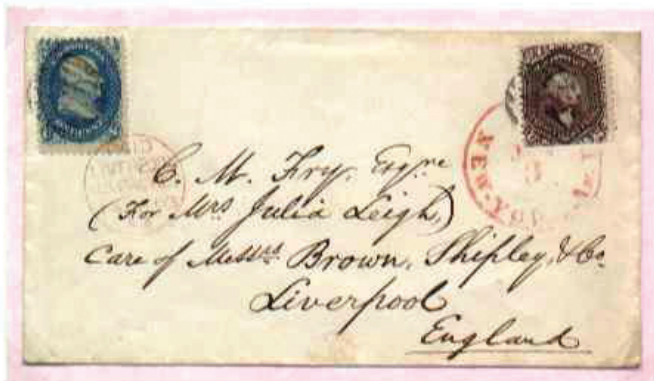 NEW YORK
C. M. Fry, Esqre
(For Mrs Julia Leigh,)
Care of Messrs Brown, Shipley, & Co
Liverpool
England